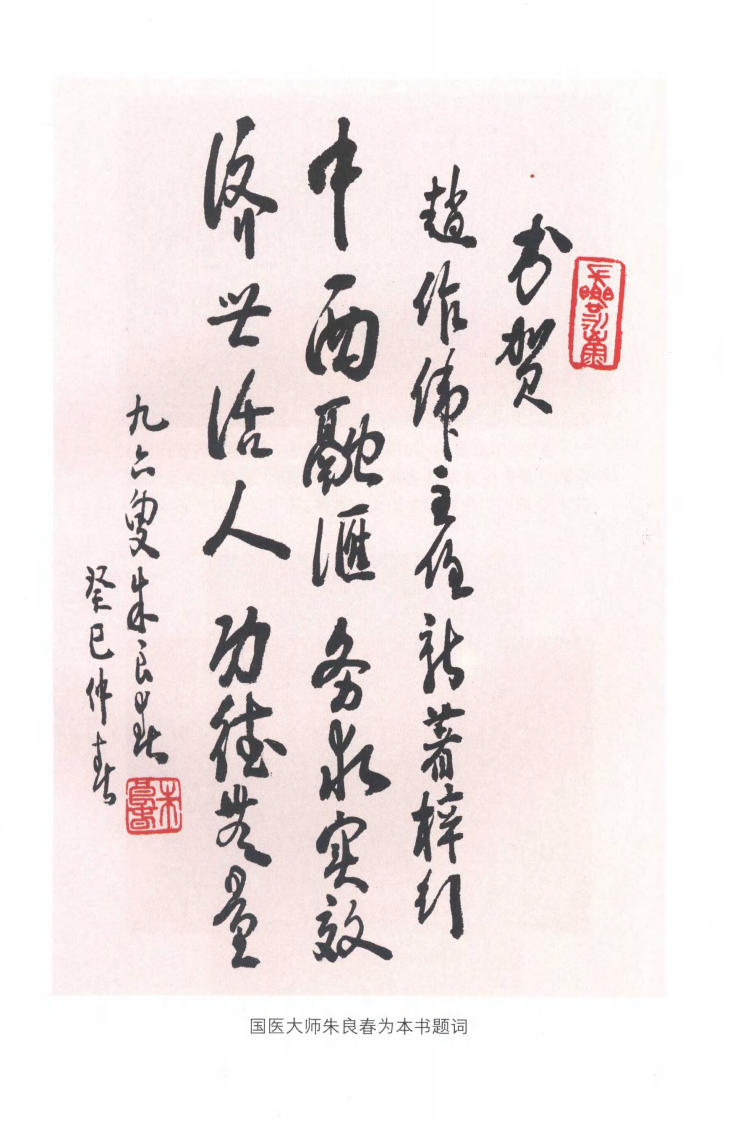 书贺
趙作偉主任新著梓行
中西融滙务求实效
济世活人功德無量
九六叟朱良春
癸巳仲春
国医大师朱良春为本书题词